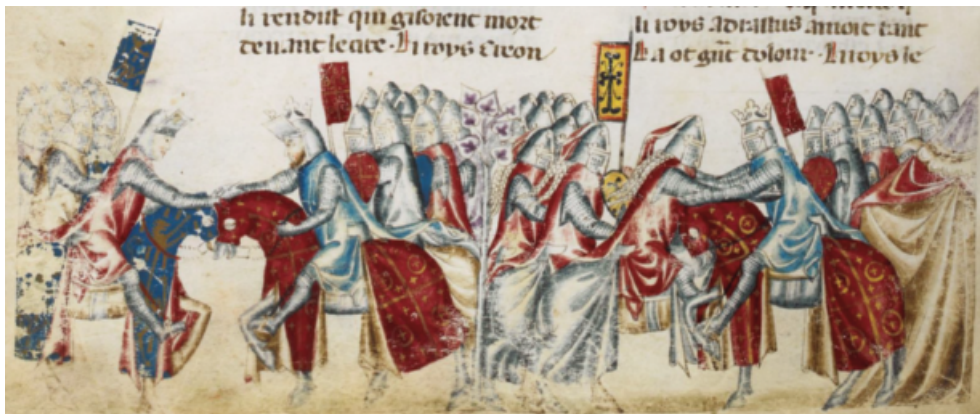 li rendist qui gisoient mort
deuant le cite. Li roys Creon
li roys adrastus amoit tant
La ot grant dolour. Li roys le